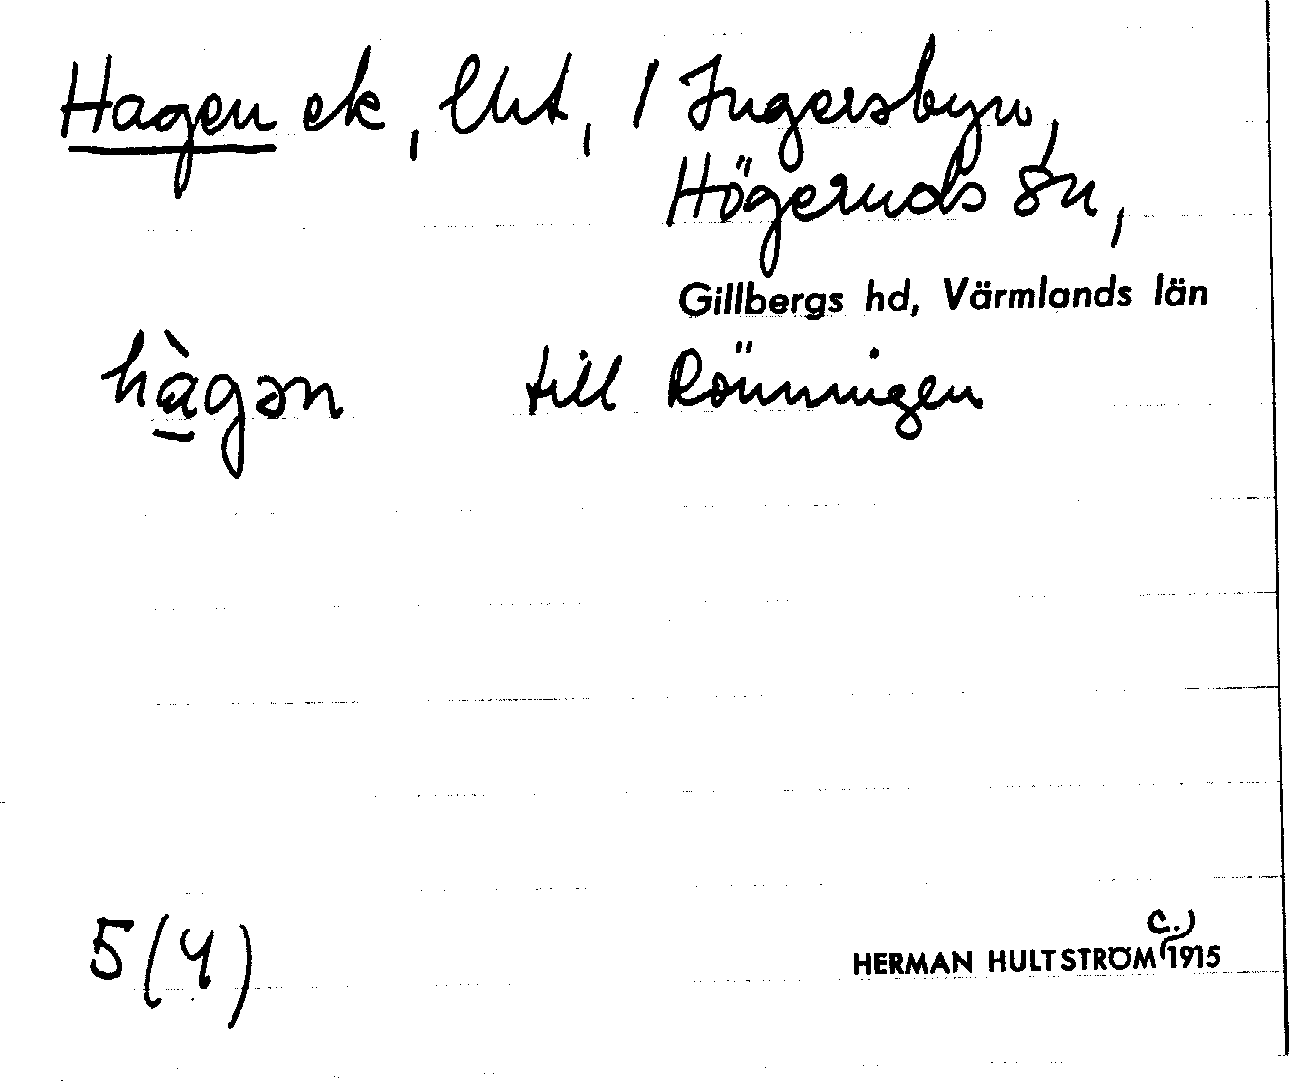 Hagen ek, lht, 1 Ingersbyn,
Högeruds sn,
Gillbergs hd, Värmlands län
hàgən till Rönningen
5 (4)
c.
HERMAN HULTSTRÖM 1915